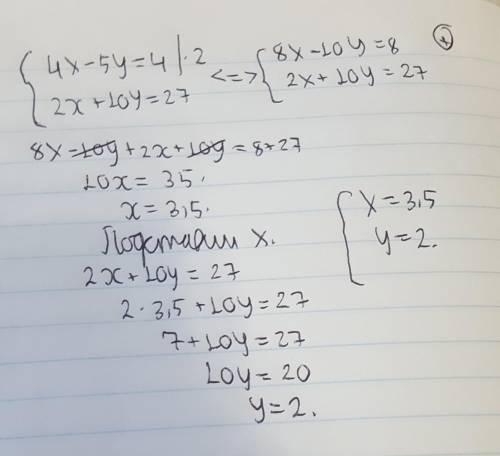 { 4x-5y=4 |·2 <=> { 8x-10y=8 (+)
2x+10y=27 2x+10y=27
8x-10y+2x+10y=8+27
10x=35.
x=3,5.
Подставим x.
2x+10y=27
2·3,5+10y=27
7+10y=27
10y=20
y=2.
{ x=3,5
y=2.